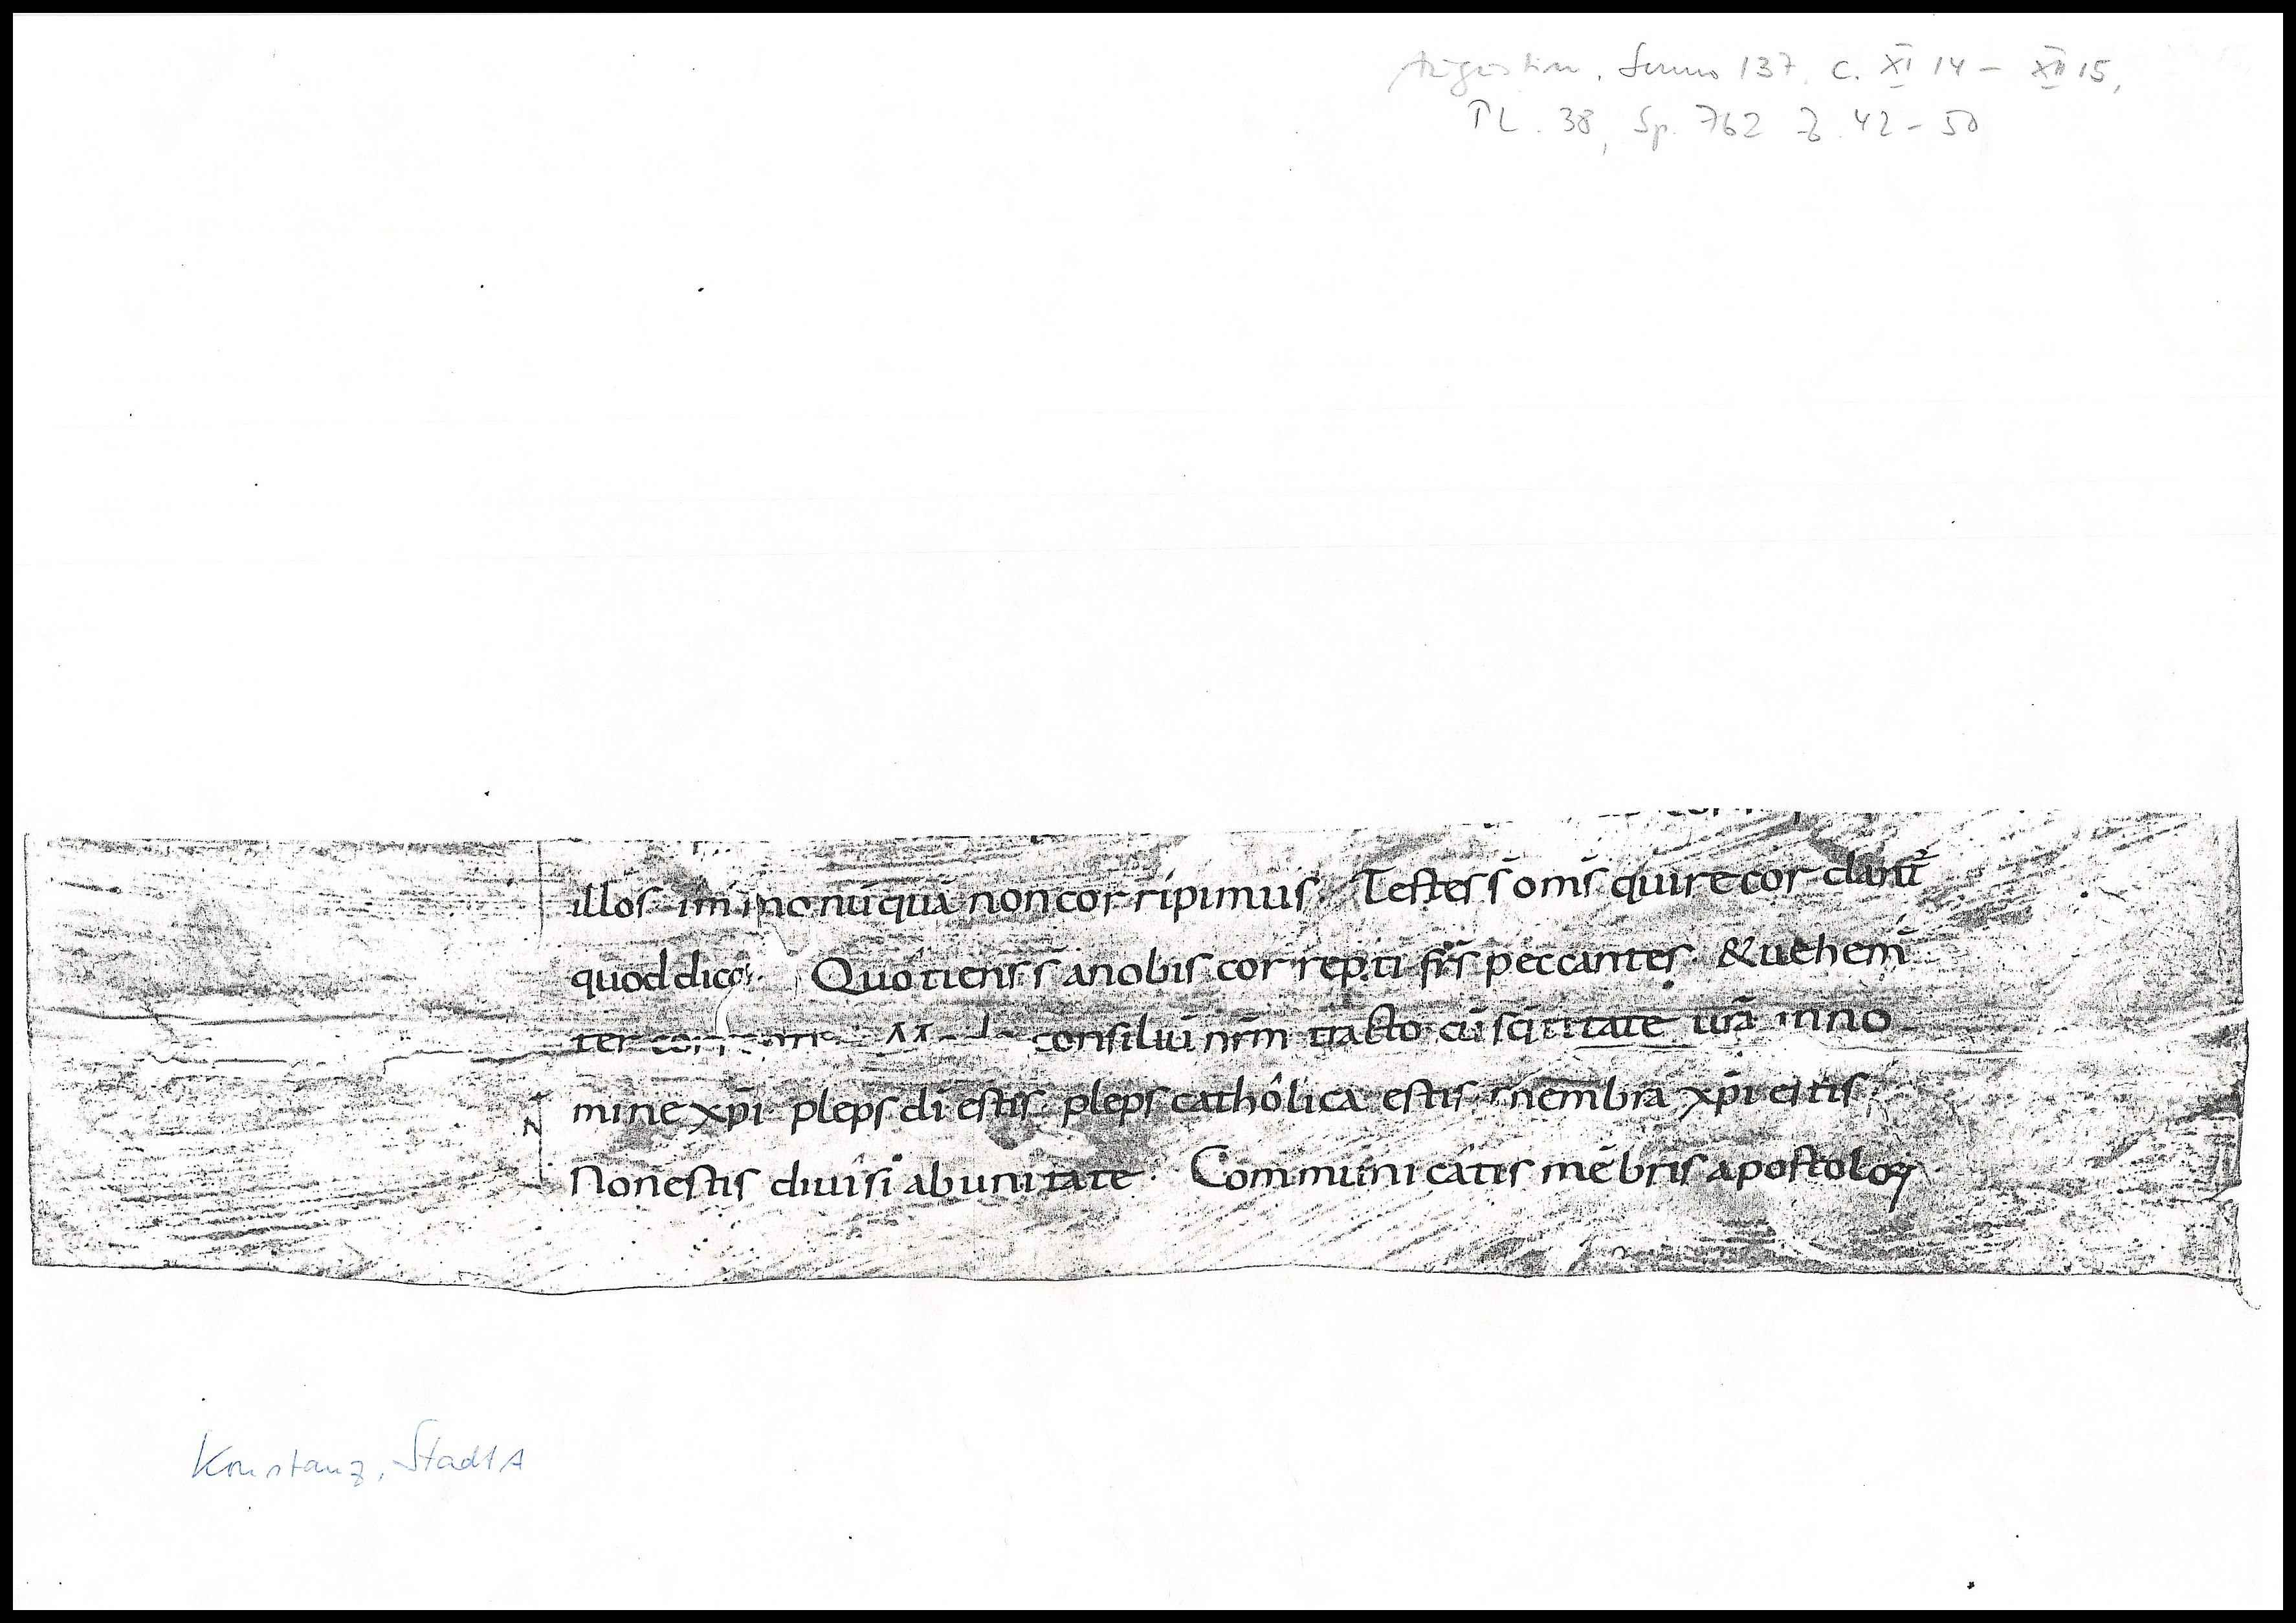 Augustin, Sermo 137, c. XI 14 – XII 15,
PL. 38, Sp. 762 Z. 42 – 50
illos immo nūquā non corripimus. Testes s̄ om̄s qui recordant᷑
quod dico. Quotiens s̄ a nobis correpti fr̄s peccantes. & uehem̄
ter consiliū nr̄m tracto cū sc̄itate ur̄a in no
mine xp̄i. pleps dī estis. pleps catholica estis. membra xp̄i estis.
Non estis diuisi ab unitate. Communicatis mēbris apostoloꝝ
Konstanz, StadtA